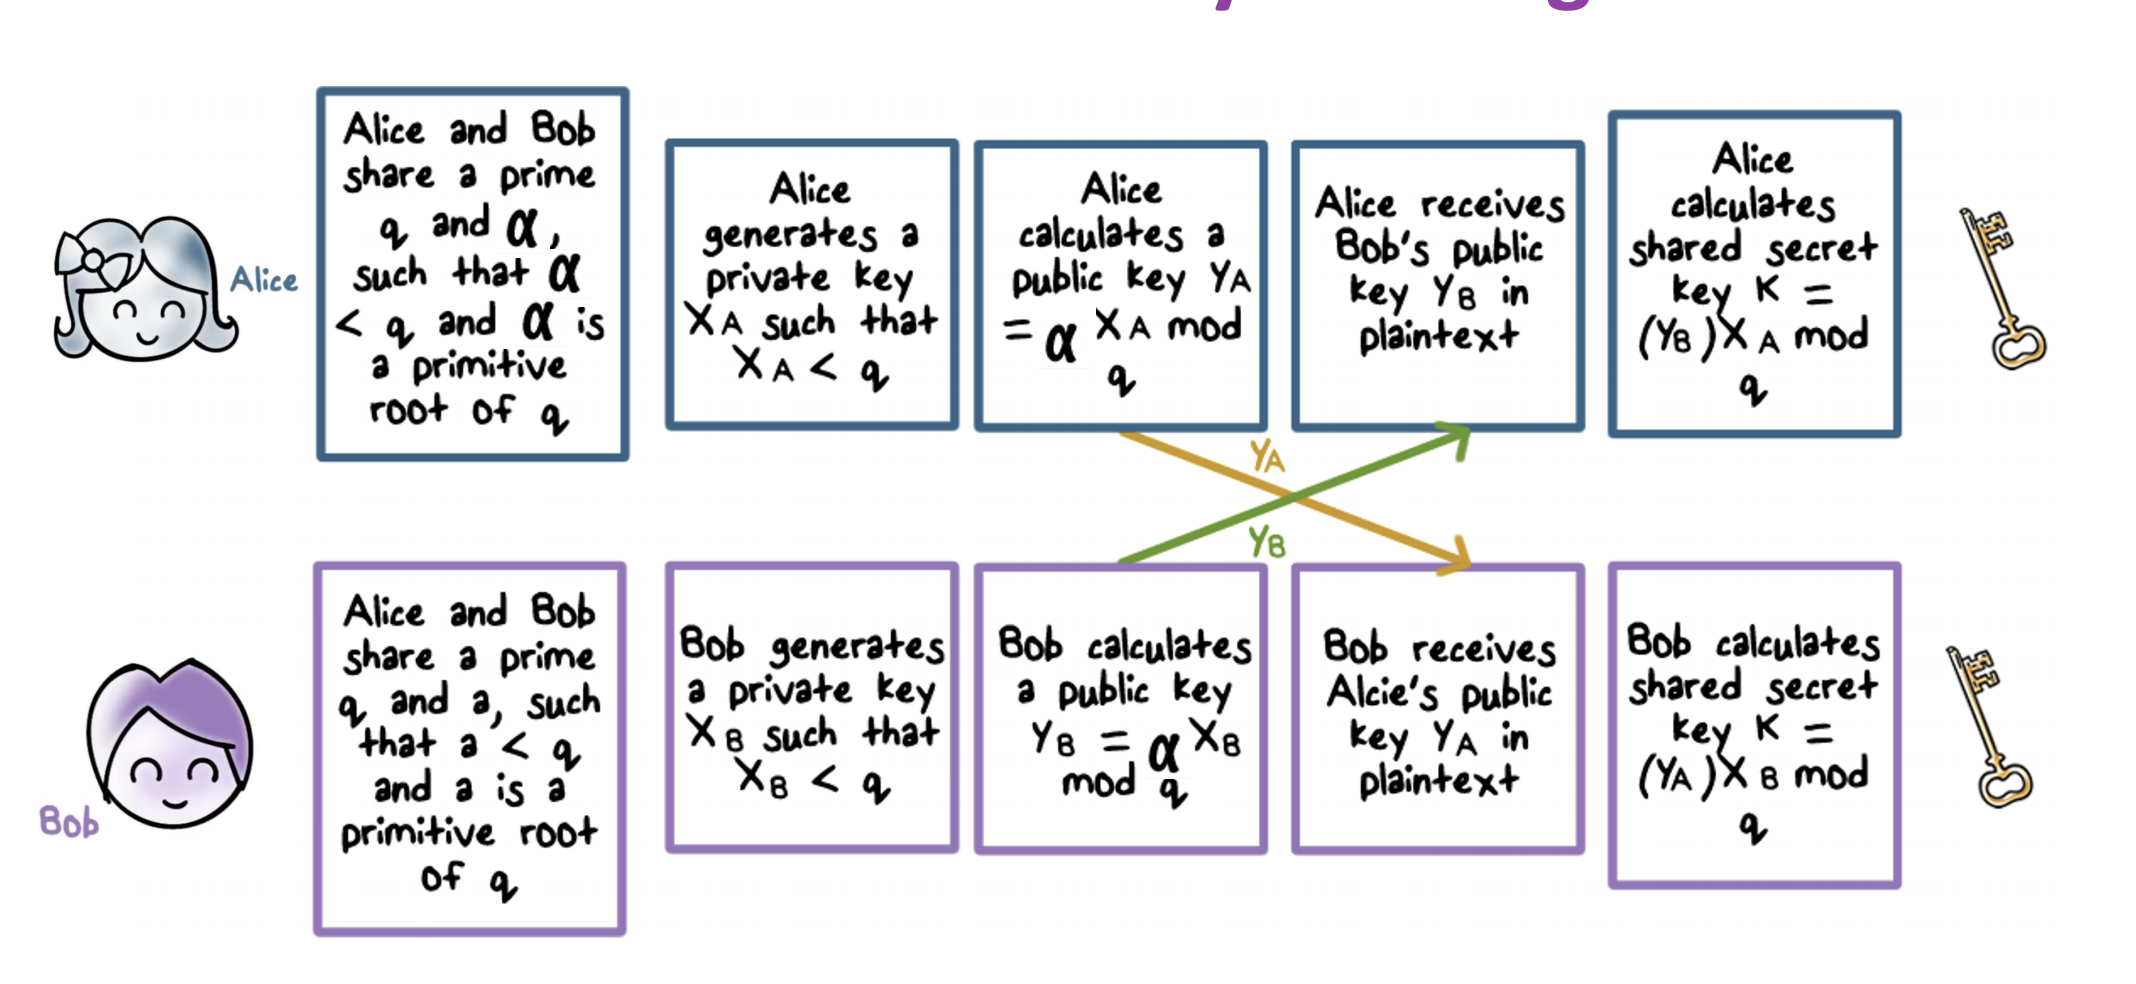 Alice and Bob
share a prime
q and α,
such that α
< q and α is
a primitive
root of q
Alice
generates a
private key
XA such that
XA < q
Alice
calculates a
public key YA
= α XA mod
q
Alice receives
Bob's public
key YB in
plaintext
Alice
calculates
shared secret
key K =
(YB)XA mod
q
Alice
YA
YB
Alice and Bob
share a prime
q and a, such
that a < q
and a is a
primitive root
of q
Bob generates
a private key
XB such that
XB < q
Bob calculates
a public key
YB = α XB
mod q
Bob receives
Alcie's public
key YA in
plaintext
Bob calculates
shared secret
key K =
(YA)XB mod
q
Bob